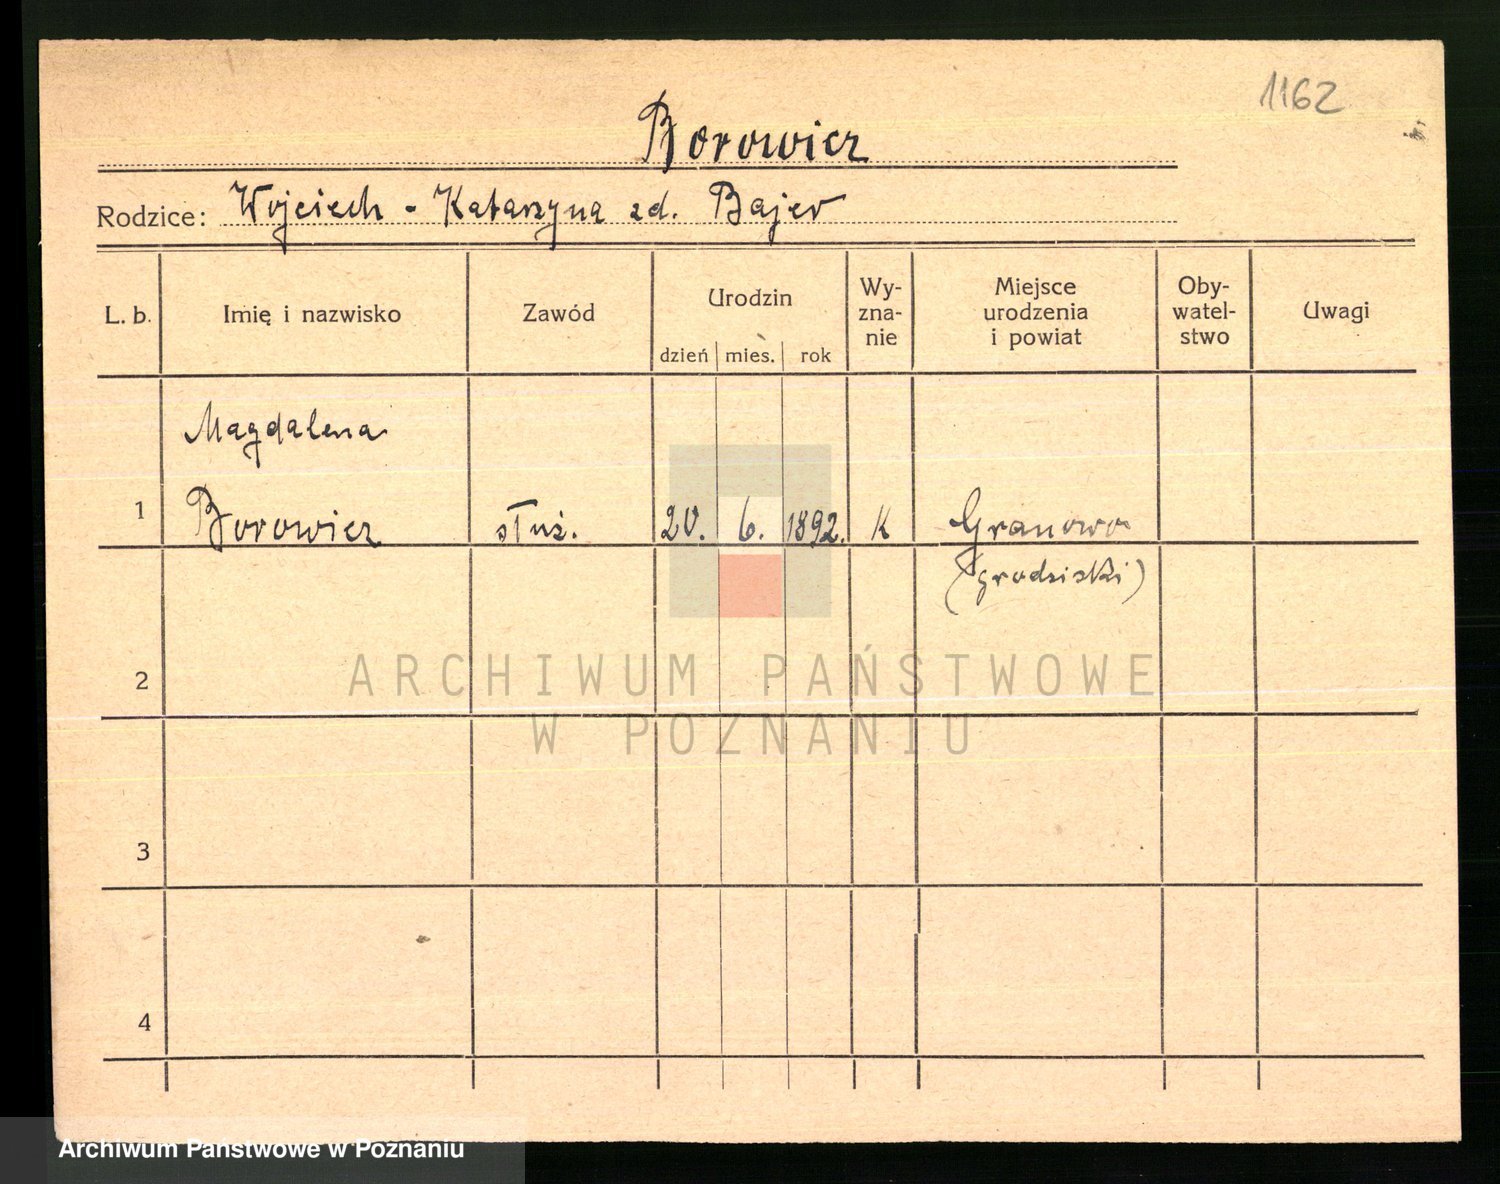 1162
Borowicz
Rodzice: Wojciech - Katarzyna zd. Bajer
L. b. Imię i nazwisko Zawód Urodzin dzień mies. rok Wy-zna-nie Miejsce urodzenia i powiat Oby-watel-stwo Uwagi
Magdalena
1 Borowicz służ. 20. 6. 1892. K Granowo
(grodziski)
2
ARCHIWUM PAŃSTWOWE
W POZNANIU
3
4
Archiwum Państwowe w Poznaniu